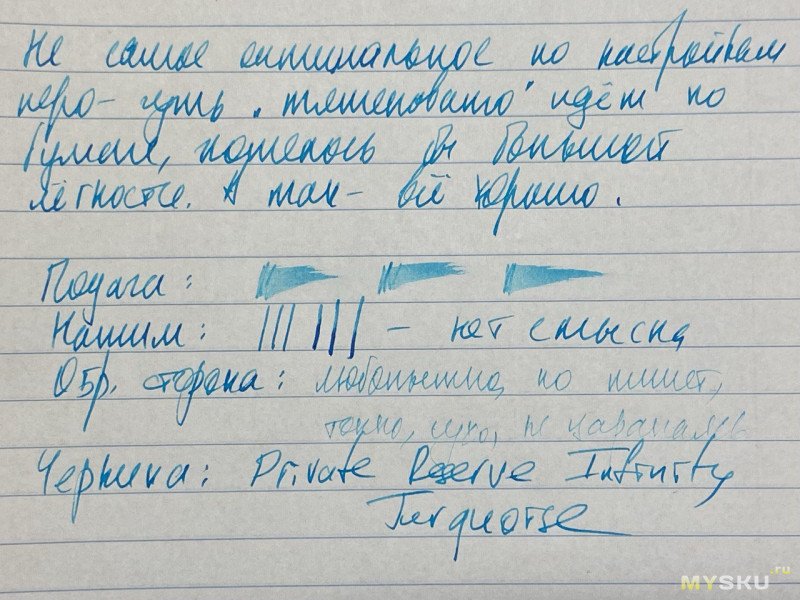 Не самое оптимальное по настройкам
перо - чуть "тяжеловато" идёт по
бумаге, хотелось бы большей
лёгкости. А так - всё хорошо.
Подача:
Нажим: - нет смысла
Обр. сторона: любопытно, но пишет,
тонко, сухо, не царапаясь
Чернила: Private Reserve Infinity
Turquoise
MYSKU.ru